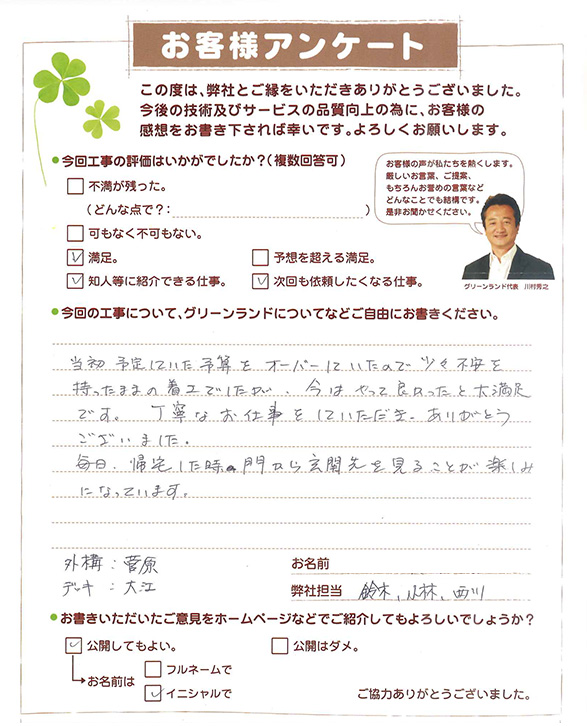 お客様アンケート
この度は、弊社とご縁をいただきありがとうございました。
今後の技術及びサービスの品質向上の為に、お客様の
感想をお書き下されば幸いです。よろしくお願いします。
●今回工事の評価はいかがでしたか?(複数回答可)
不満が残った。
(どんな点で?: )
可もなく不可もない。
満足。
予想を超える満足。
知人等に紹介できる仕事。
次回も依頼したくなる仕事。
お客様の声が私たちを熱くします。
厳しいお言葉、ご提案、
もちろんお誉めの言葉など
どんなことでも結構です。
是非お聞かせください。
グリーンランド代表 川村秀之
●今回の工事について、グリーンランドについてなどご自由にお書きください。
当初 予定していた予算を オーバーしていたので 少々不安を
持ったままの着工でしたが、今は やって良かったと大満足
です。 丁寧なお仕事をしていただき、ありがとう
ございました。
毎日、帰宅した時、門から玄関先を見ることが楽しみ
になっています。
外構:菅原
デッキ:大江
お名前
弊社担当 鈴木、小林、西川
●お書きいただいたご意見をホームページなどでご紹介してもよろしいでしょうか?
公開してもよい。
公開はダメ。
お名前は
フルネームで
イニシャルで
ご協力ありがとうございました。